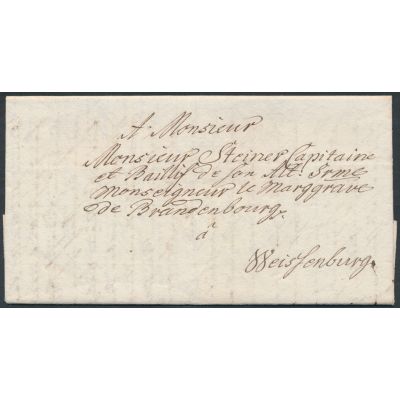 A Monsieur
Monsieur Steiner Capitaine
et Baillif de son Alt: Srme
Monseigneur le Marggrave
de Brandenbourg.
à
Weissenburg.